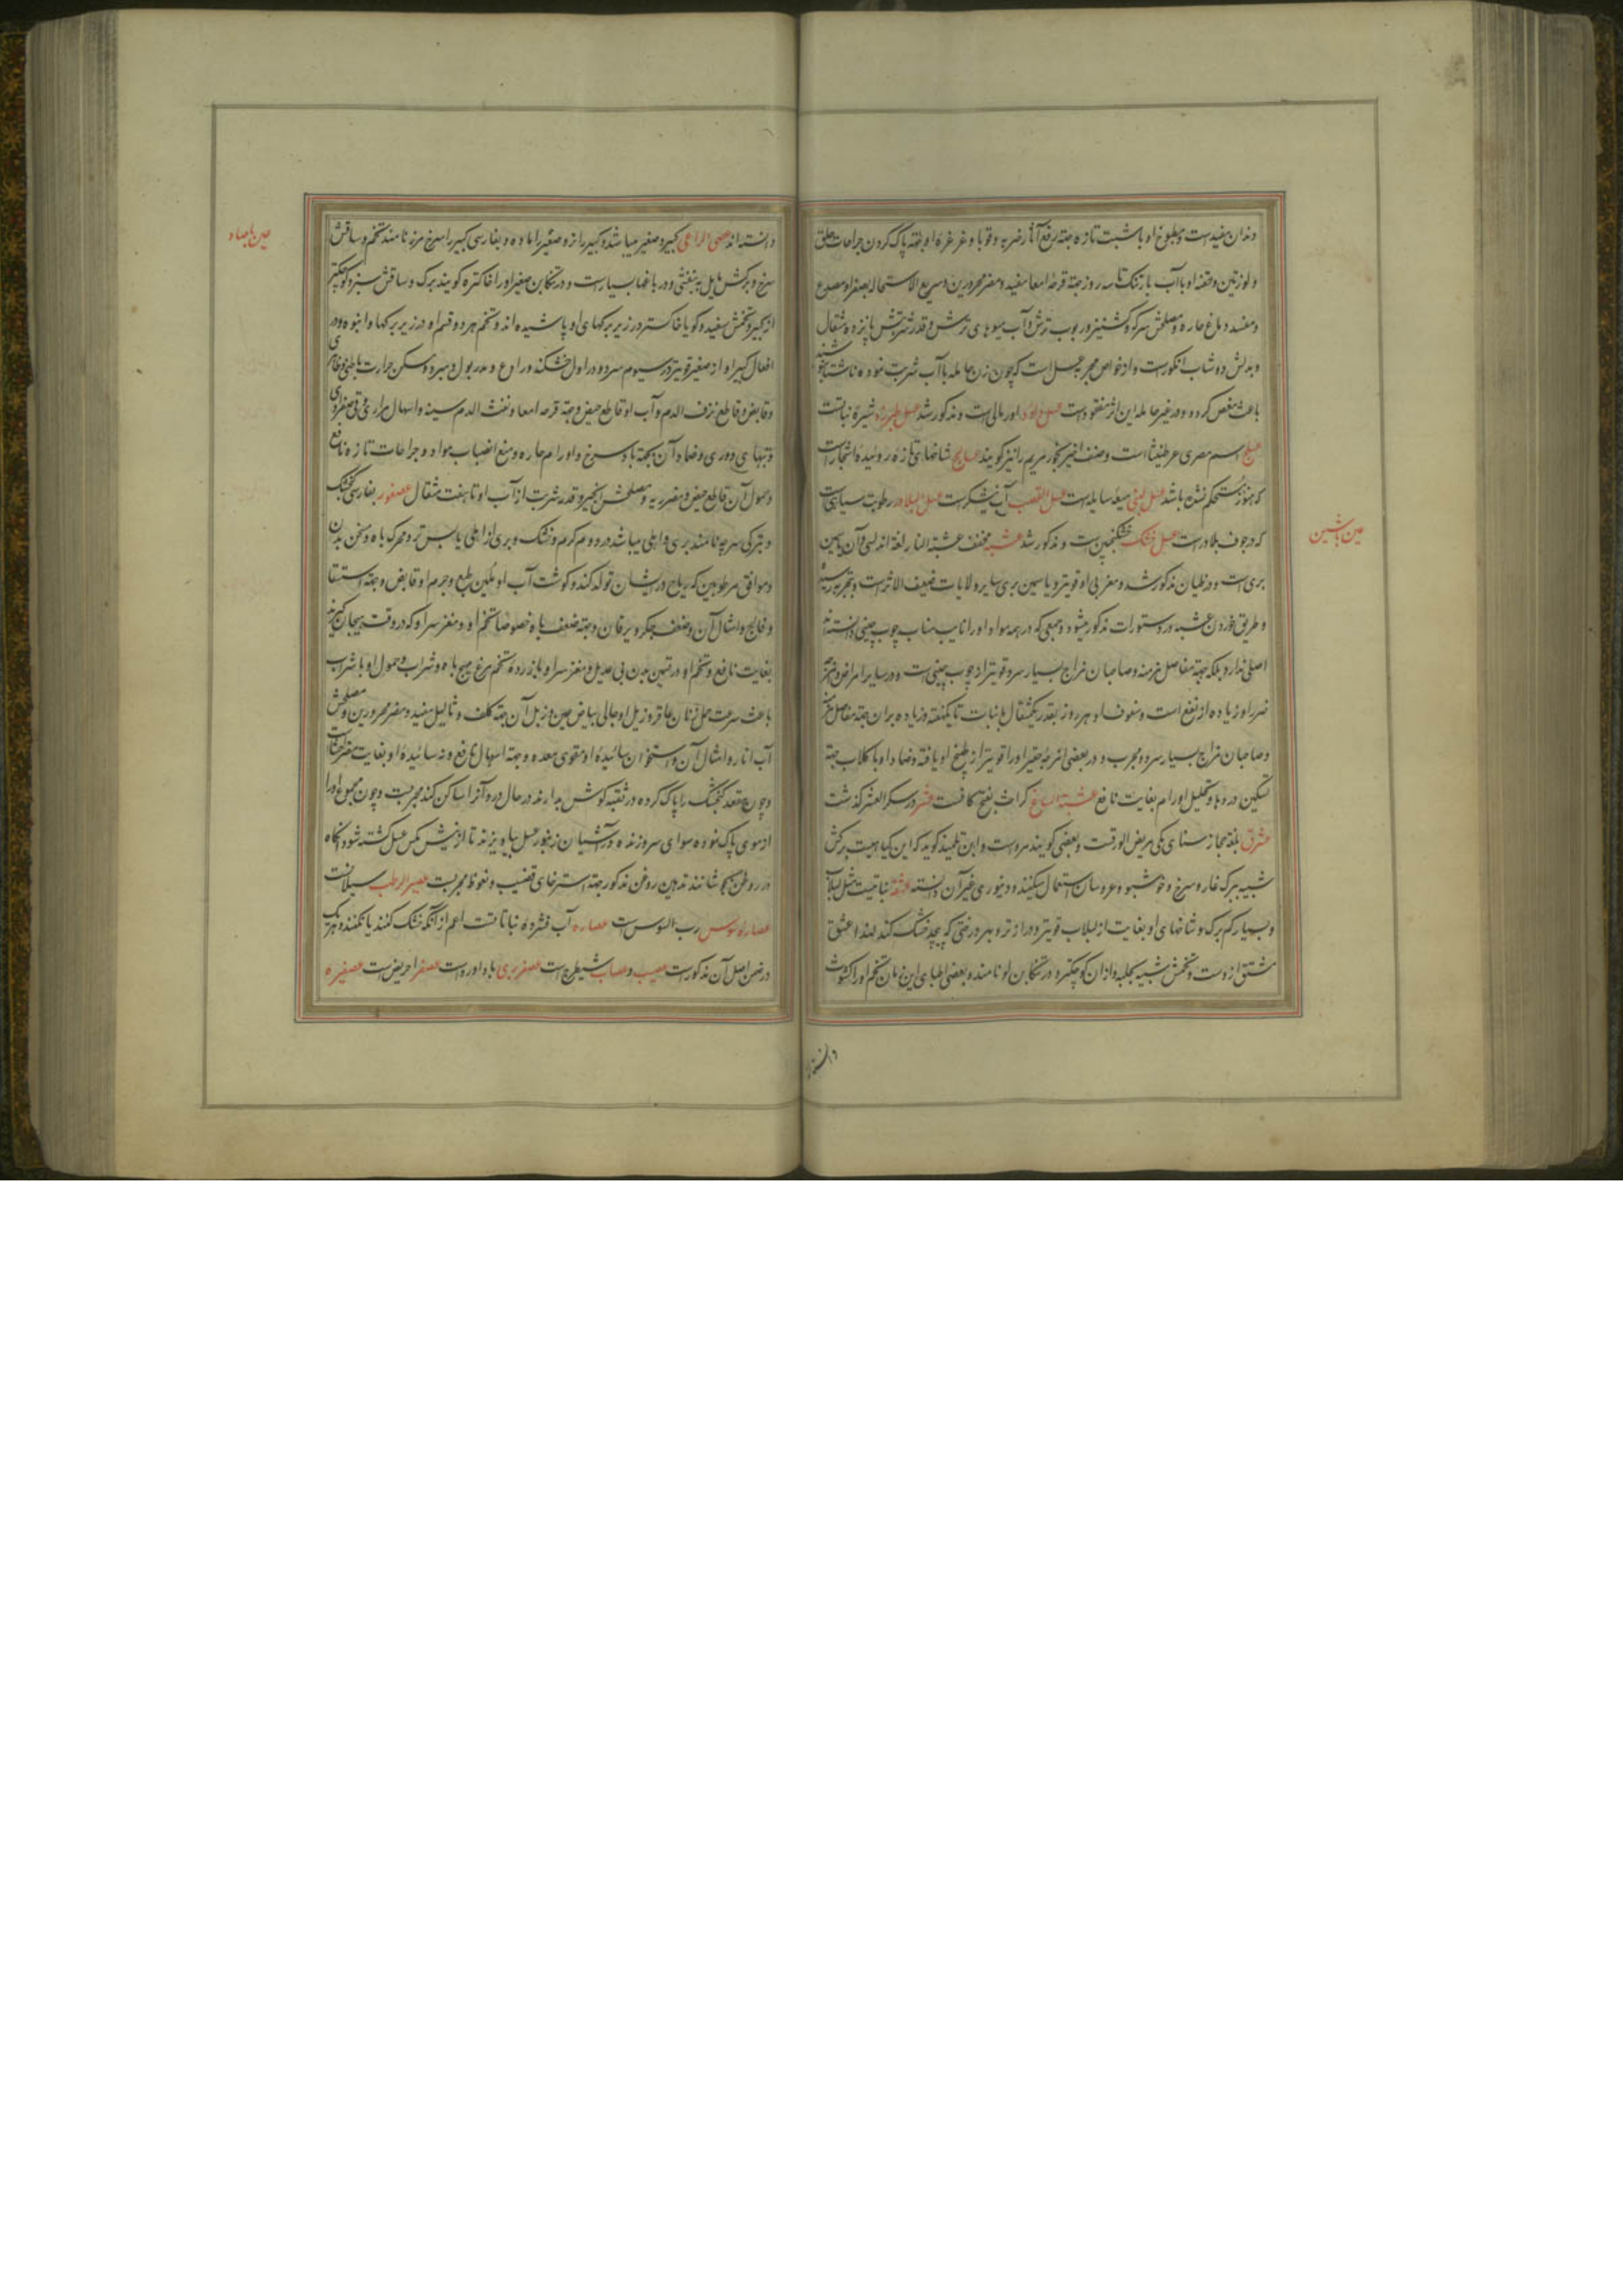 دندان مفیدست و مطبوخ او با شبت تازه جهة رفع آثار ضربه و قوبا و غرغرهٔ او جهة پاک کردن جراحات حلق
و لوزتین و حقنهٔ او با آب بارتنک تا سه روز جهة قرحهٔ امعا مفید و مضر محرورین و سریع الاستحاله بصفرا و مصدع
و مفسد دماغ حاره و مصلحش سرکه و کشنیز و ربوب ترش و آب میوهای ترش و قدر شربتش پانزده مثقال
و بدلش دوشاب انکورست و از خواص مجربه عسل است که چون زن حامله با آب شربت نموده ناشتا بنوشد
باعث مغص کردد و در غیر حامله این اثر مفقودست عسل داود اورمالی است و مذکور شد عسل طبرزد شیرهٔ نباتست
اسم مصری عرطنیثا است و صنف اخیر بخور مریم را نیز کویند عسالیج شاخهای تازه روئیده اشجارست
که هنوز مستحکم نشده باشد عسل لبنی میعه سایله است عسل القصب آب نیشکرست عسل البلادر رطوبت سیاهی است
که در جوف بلادرست عسل خشک خشکنجبین است و مذکور شد عشبه مخفف عشبة النار لغة اندلسی و آن یاسمین
بری است و در ظیان مذکور شد و مغربی او قویتر و یاسمین بری سایر ولایات ضعیف الاثرست و بتجربه رسیده
و طریق خوردن عشبه در دستورات مذکور میشود و جمعی که در همه مواد او را نایب مناب چوب چینی دانسته‌اند
اصلی ندارد بلکه جهة مفاصل مزمنه و صاحبان مزاج بسیار سرد قویتر از چوب چینی است و در سایر امراض و امزجه
ضرر او زیاده از نفع است و سفوف او هر روز بقدر یکمثقال با نبات تا یکهفته و زیاده بران جهة مفاصل مزمن
و صاحبان مزاج بسیار سرد مجرب و در بعضی امزجه حقیر او را قویتر از طبیخ او یافته و ضماد او با کلاب جهة
تسکین دردها و تحلیل اورام بغایت نافع عشبة السباع کراث بفتح کافست عشر در سکر العشر کذشت
عشرق بلغة حجاز سنای مکی عریض الورقست و بعضی کویند سروست و ابن تلمیذ کوید که این کیاهیست برکش
شبیه ببرک غار و سرخ و خوشبو و عروسان استعمال میکنند و دینوری غیر آن دانسته عشقه نباتیست مثل لبلاب
و بسیار کم برک و شاخهای او بغایت از لبلاب قویتر و دراز تر و بهر درختی که پیچد خشک کند لهذا عشق
مشتق ازوست و تخمش شبیه بحلبه و ازان کوچکتر و در تنکابن لو نامند و بعضی اطبای این زمان تخم او را کشوث
دانسته‌اند
عین با شین
دانسته‌اند عصی الراعی کبیر و صغیر میباشد و کبیر را نر و صغیر را ماده و بفارسی کبیر را سرخ مرز نامند تخم و ساقش
سرخ و برکش مایل به بنفشی و در باغها بسیارست و در تنکابن صغیر او را خاکتره کویند برک و ساقش سبز و کوچکتر
از کبیر و تخمش سفید و کویا خاکستر در زیر برکهای او پاشیده‌اند و تخم هر دو قسم او در زیر برکها و انبوه و در
افعال کبیر او از صغیر قویتر در سیوم سرد و در اول خشک و رادع و مدر بول و مبرد و مسکن حرارت باطنی و ظاهری
و قابض و قاطع نزف الدم و آب او قاطع حیض و جهة قرحه امعا و نفث الدم سینه و اسهال مراری و قی صفراوی
و تبهای دوری و ضماد آن جهة باد سرخ و اورام حاره و منع انصباب مواد و جراحات تازه نافع
و حمول آن قاطع حیض و مضر ریه و مصلحش انجیر و قدر شربت از آب او تا هفت مثقال عصفور بفارسی کنجشک
و بترکی سرچه نامند بری و اهلی میباشد در دوم کرم و خشک و بری از اهلی یابس تر و محرک باه و مسخن بدن
و موافق مرطوبین که ریاح در ایشان تولد کند و کوشت آب او ملین طبع و جرم او قابض و جهة استسقا
و فالج و امثال آن و ضعف جکر و یرقان و جهة ضعف باه خصوصا تخم او و مغز سر او که در وقت هیجان کیرند
بغایت نافع و تخم او در تسمین بدن بی عدیل و مغز سر او با زرده تخم مرغ مهیج باه و شراب و حمول او با شراب
باعث سرعت حمل زنان عاقر و زبل او جالی بیاض عین و زبل آن جهة کلف و ثالیل مفید و مضر محرورین و مصلحش
آب انار و امثال آن و استخوان سائیده او مقوی معده و جهة اسهال نافع و نه سائیده او بغایت مضر امعاست
و چون مقعد کنجشک را پاک کرده در ثقبه کوش بدارند در حال درد آنرا ساکن کند مجربست و چون مجموع او را
از موی پاک نموده سوای سر و زنده در آشیان زنبور عسل بیاویزند تا از نیش مکس عسل کشته شود آنکاه
در روغن بجوشانند تدهین روغن مذکور جهة استرخای قضیب و نعوظ مجربست عصیر الرطب سیلانست
عصاره سوس رب السوس است عصاره آب فشرده نباتاتست اعم از آنکه خشک کنند یا نکنند و هر یک
در ضمن اصل آن مذکورست عصیب و عصاب شیطرج است عصفر بری باداورد است عصفر احریض است عصفیره
عین با صاد